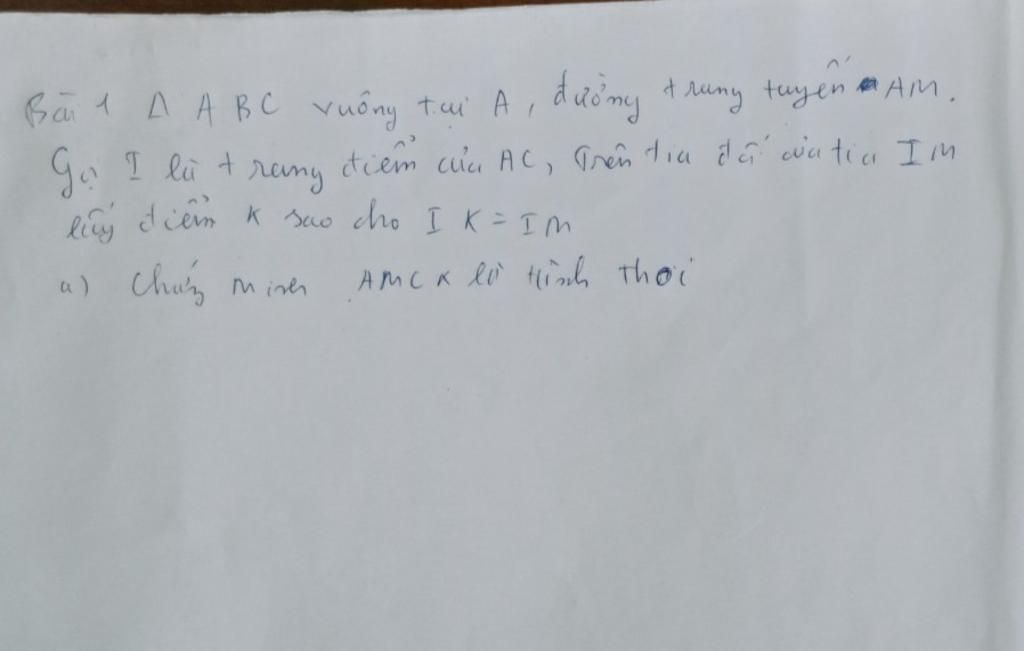 Bài 1 Δ ABC vuông tại A, đường trung tuyến AM.
Gọi I là trung điểm của AC, Trên tia đối của tia IM
lấy điểm K sao cho IK = IM
a) Chứng minh AMCK là Hình thoi